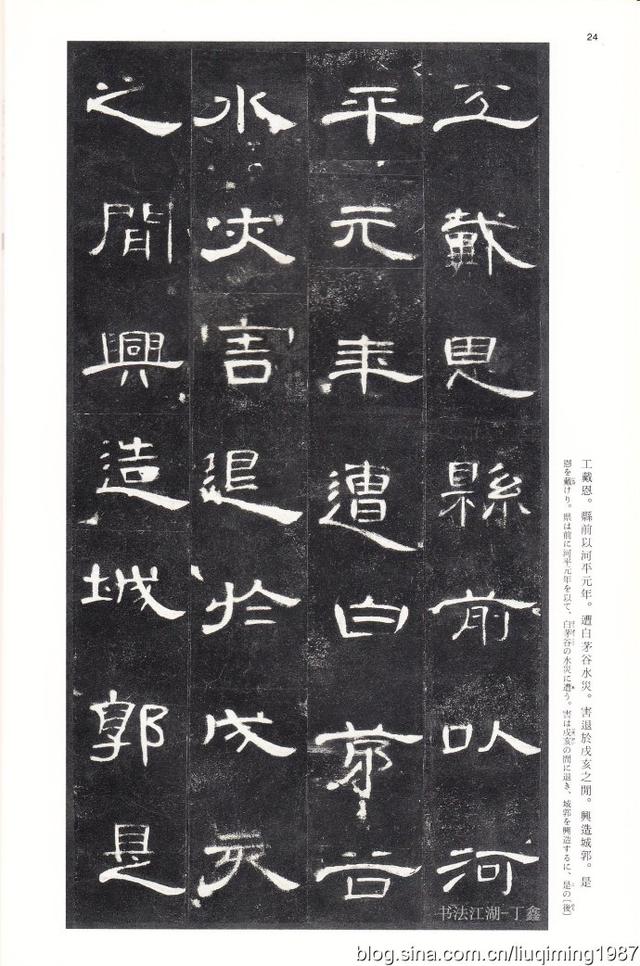 24
工戴恩縣前以河
平元年遭白茅谷
水災害退於戌亥
之間興造城郭是
工戴恩。縣前以河平元年。遭白茅谷水災。害退於戌亥之閒。興造城郭。是
恩を戴けり。県は前に河平元年を以て、白茅谷の水災に遭う。害は戌亥の間に退き、城郭を興造するに、是の〔後〕
书法江湖-丁鑫
blog.sina.com.cn/liuqiming1987